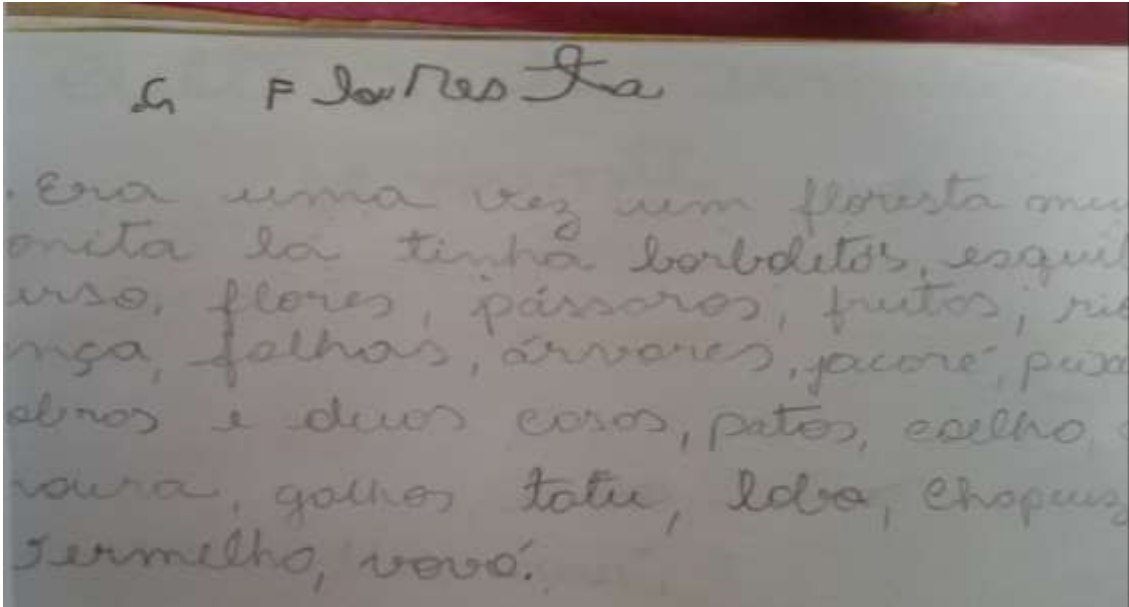 A Floresta
Era uma vez um floresta mui
onita la tinha borboletas, esquil
urso, flores, pássaros, frutos, rio
nça, folhas, árvores, jacaré, peixe
obras e duas casas, patos, coelho,
noura, galhos tatu, lobo, Chapeuz
Vermelho, vovó.